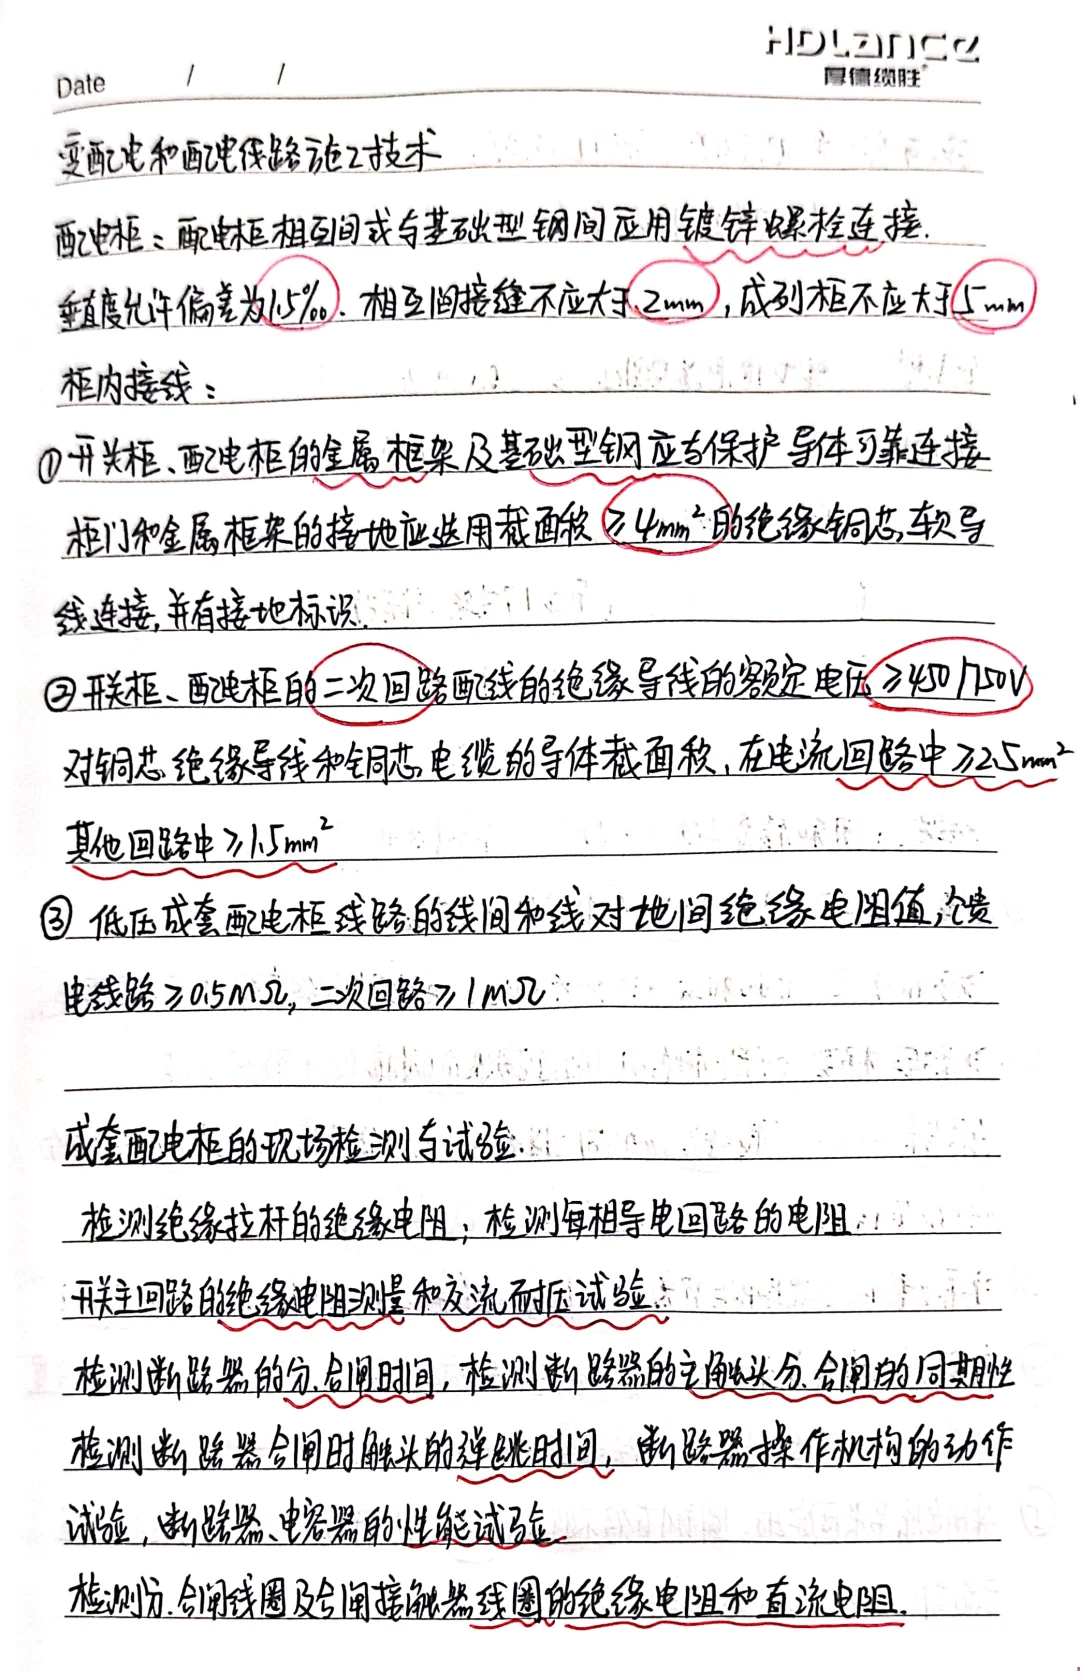 HDLANCE
厚德缆胜
Date / /
变配电和配电线路施工技术
配电柜：配电柜相互间或与基础型钢间应用镀锌螺栓连接.
垂直度允许偏差为1.5‰. 相互间接缝不应大于2mm, 成列柜不应大于5mm
柜内接线：
①开关柜、配电柜的金属框架及基础型钢应与保护导体可靠连接
柜门和金属框架的接地应选用截面积≥4mm²的绝缘铜芯软导
线连接,并有接地标识.
②开关柜、配电柜的二次回路配线的绝缘导线的额定电压≥450/750V
对铜芯绝缘导线和铜芯电缆的导体截面积, 在电流回路中≥2.5mm²
其他回路中≥1.5mm²
③ 低压成套配电柜线路的线间和线对地间绝缘电阻值, 馈
电线路≥0.5MΩ, 二次回路≥1MΩ
成套配电柜的现场检测与试验.
检测绝缘拉杆的绝缘电阻；检测每相导电回路的电阻
开关主回路的绝缘电阻测量和交流耐压试验.
检测断路器的分.合闸时间, 检测断路器的主触头分.合闸的同期性
检测断路器合闸时触头的弹跳时间, 断路器操作机构的动作
试验, 断路器、电容器的性能试验
检测分.合闸线圈及合闸接触器线圈的绝缘电阻和直流电阻.